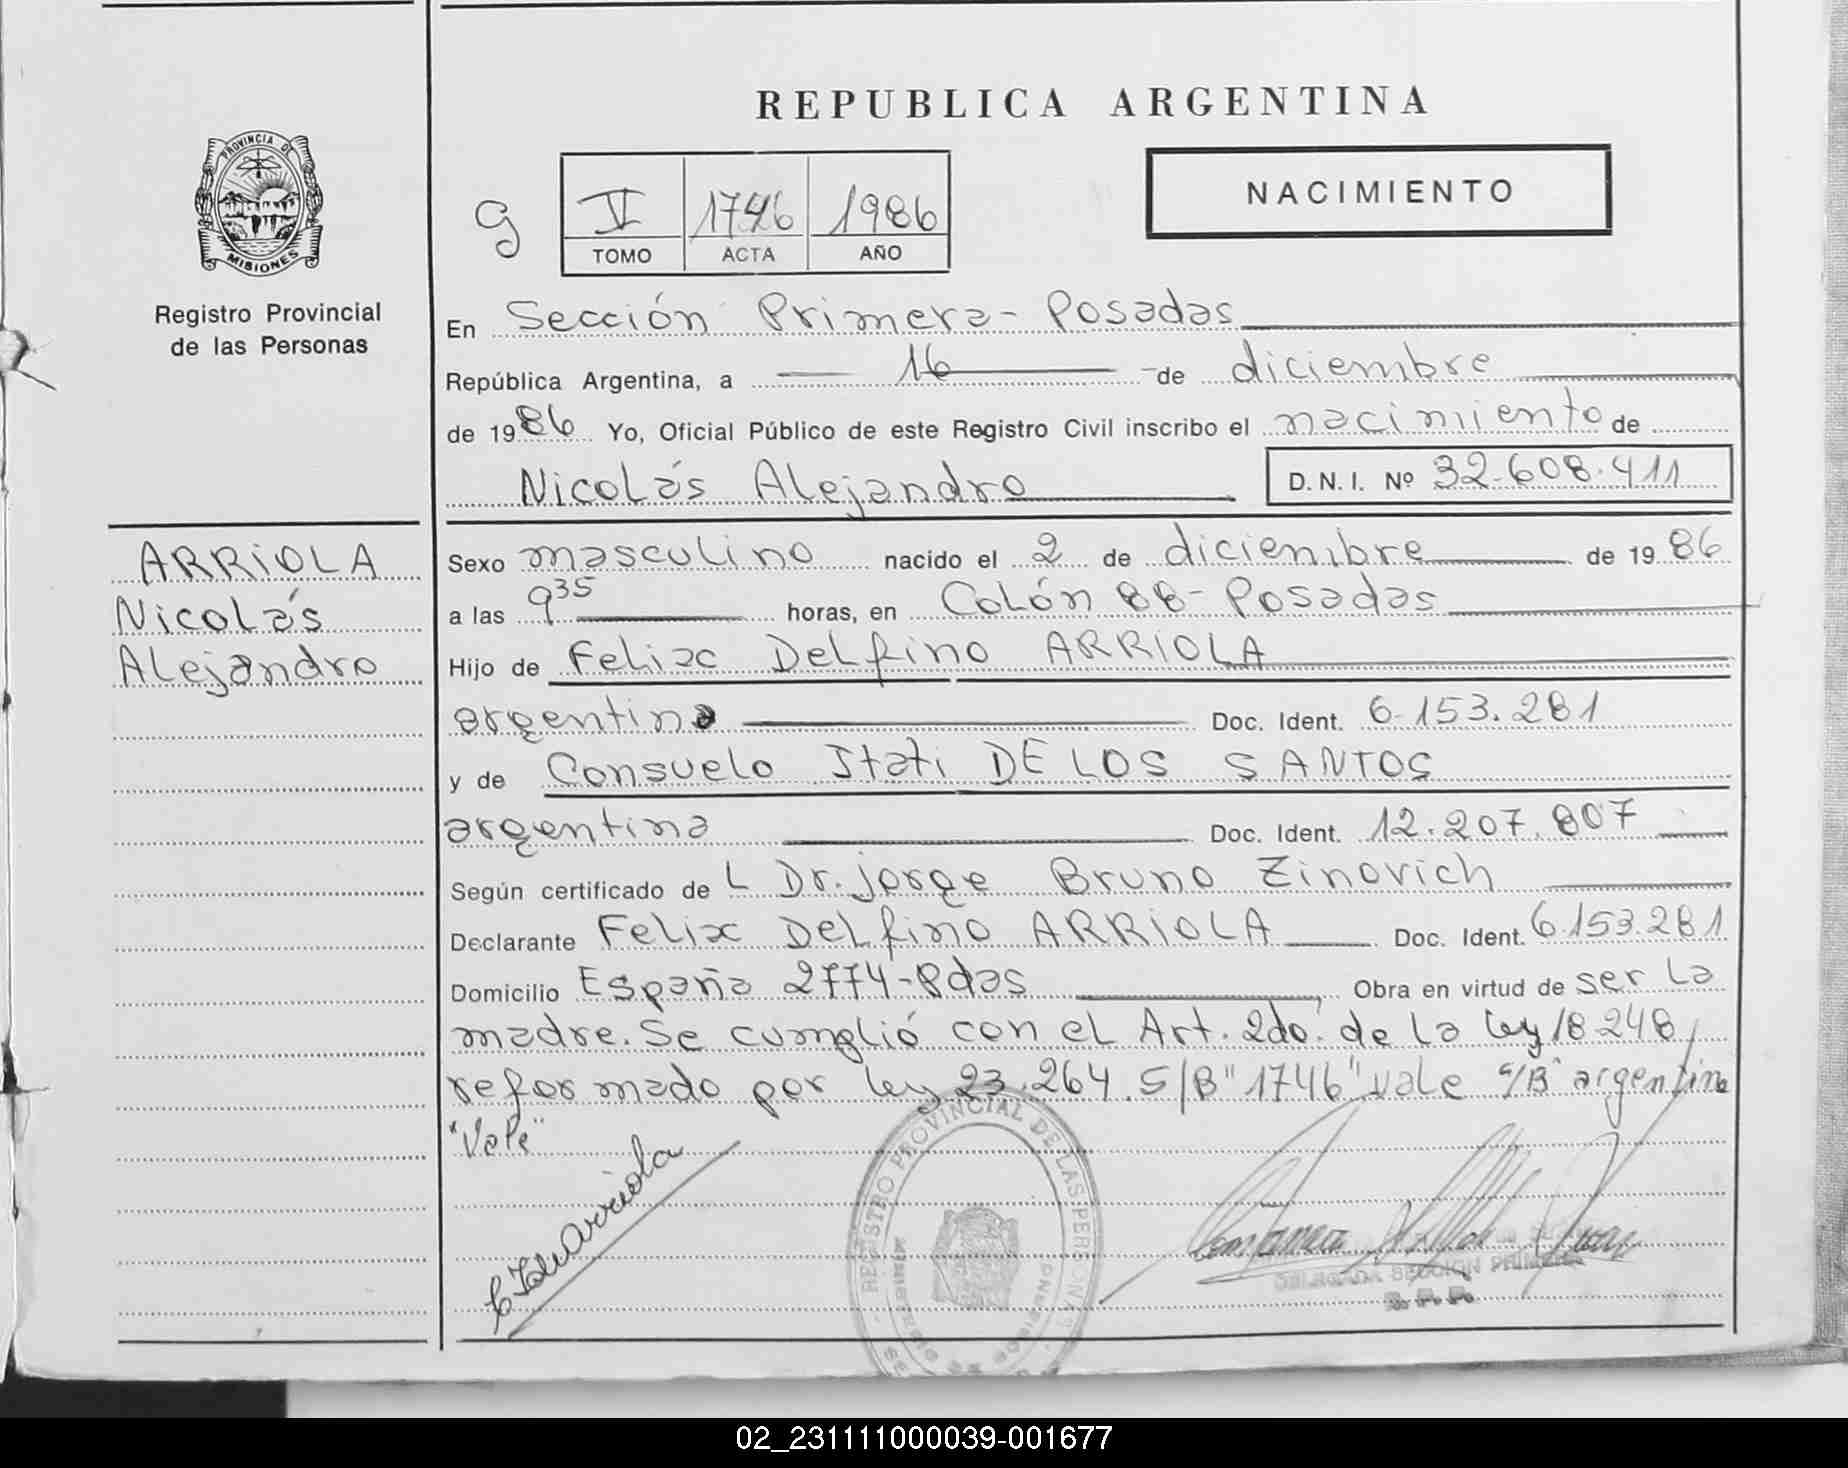 REPUBLICA ARGENTINA
PROVINCIA DE
MISIONES
Registro Provincial
de las Personas
g V 1746 1986
TOMO ACTA AÑO
NACIMIENTO
En Sección Primera - Posadas
República Argentina, a 16 de diciembre
de 1986 Yo, Oficial Público de este Registro Civil inscribo el nacimiento de
Nicolás Alejandro D.N.I. Nº 32.608.411
ARRIOLA
Nicolás
Alejandro
Sexo masculino nacido el 2 de diciembre de 1986
a las 9 35 horas, en Colón 88 - Posadas
Hijo de Felix Delfino ARRIOLA
argentino Doc. Ident. 6.153.281
y de Consuelo Itati DE LOS SANTOS
argentina Doc. Ident. 12.207.807
Según certificado de L Dr. Jorge Bruno Zinovich
Declarante Felix Delfino ARRIOLA Doc. Ident. 6.153.281
Domicilio España 2774 - Pdas Obra en virtud de ser la
madre. Se cumplió con el Art. 2do. de la ley 18.248
reformado por ley 23.264. S/B "1746" vale S/B "argentina
"Vale"
Arriola
REGISTRO PROVINCIAL DE LAS PERSONAS
DELEGADA SECCION PRIMERA
R. P. P.
02_231111000039-001677